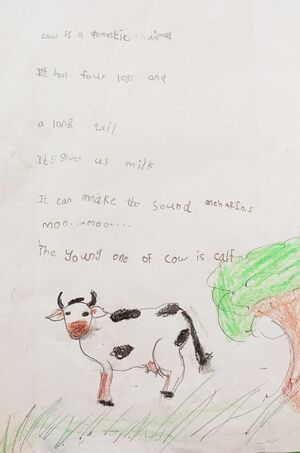 cow is a domestic animal
It has four legs and
a long tail
It gives us milk
It can make the sound
moo...moo....
The young one of cow is calf